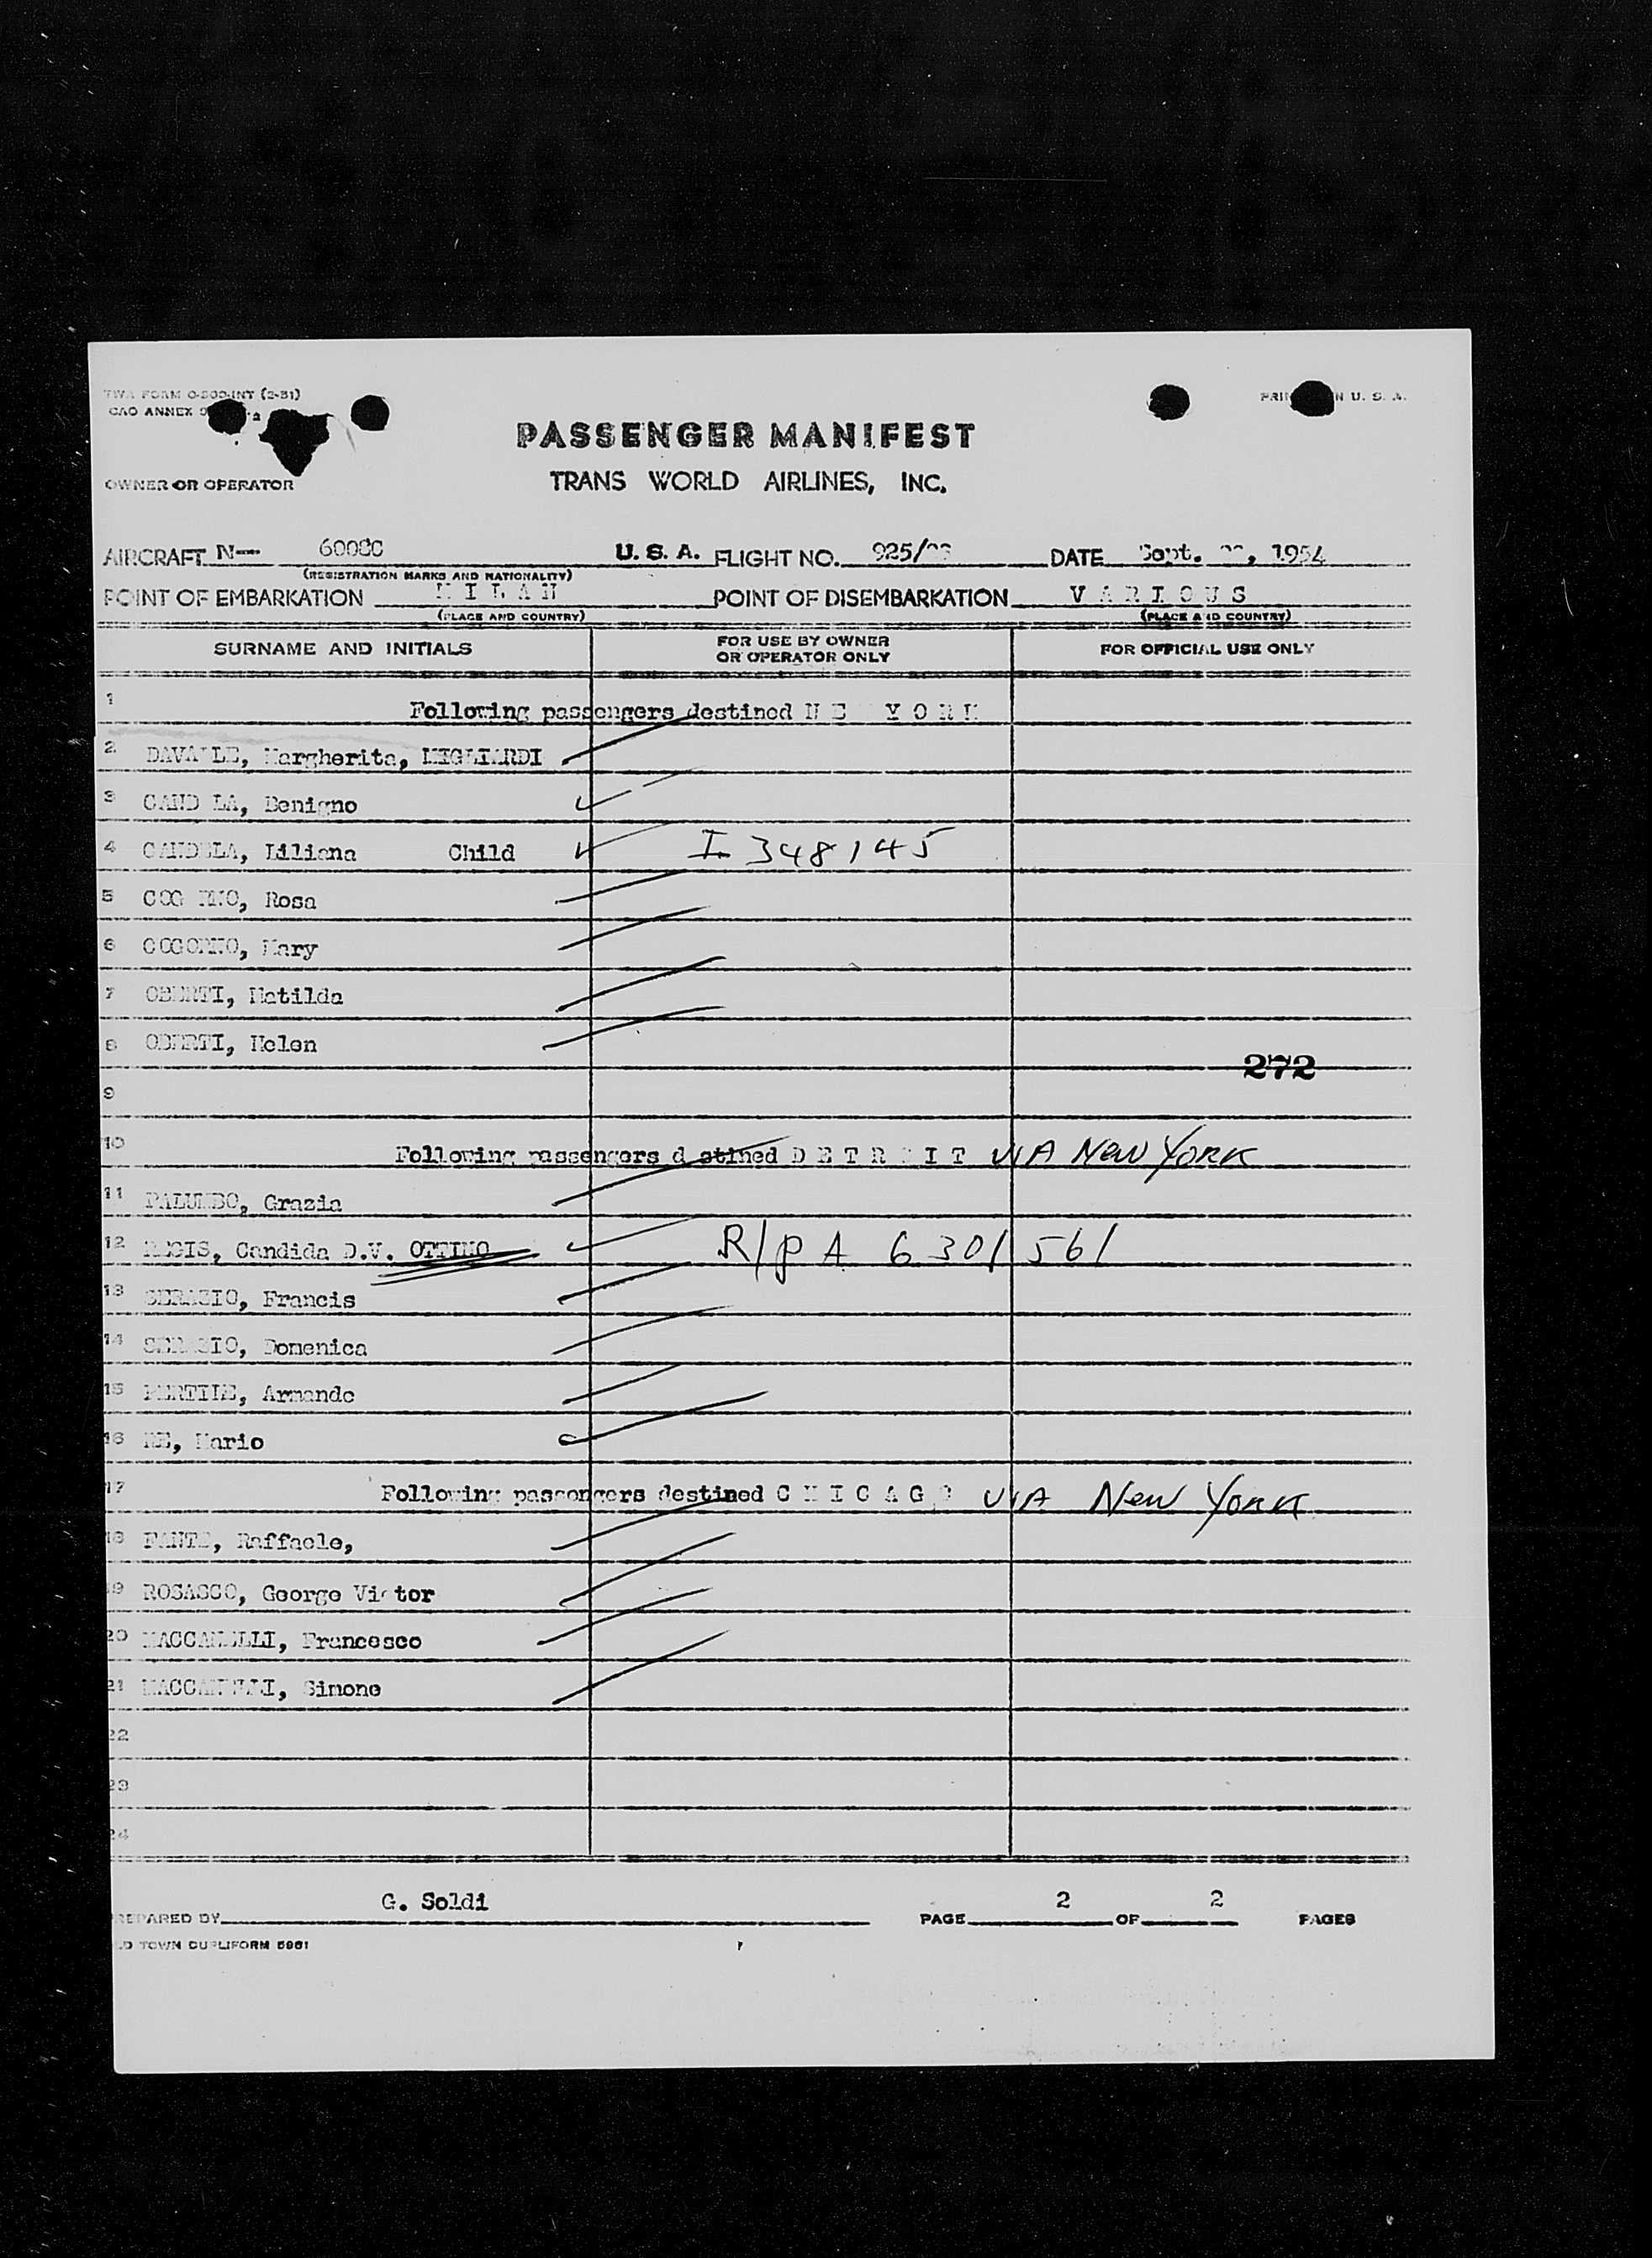 TWA FORM O-300-INT (2-51)
CAO ANNEX 9
PRIN IN U. S. A.
PASSENGER MANIFEST
OWNER OR OPERATOR TRANS WORLD AIRLINES, INC.
AIRCRAFT N— U. S. A. FLIGHT NO. 925/ DATE Sept. , 1954
(REGISTRATION MARKS AND NATIONALITY)
POINT OF EMBARKATION M I L A N POINT OF DISEMBARKATION V A R I O U S
(PLACE AND COUNTRY) (PLACE AND COUNTRY)
SURNAME AND INITIALS FOR USE BY OWNER OR OPERATOR ONLY FOR OFFICIAL USE ONLY
1 Following passengers destined N E Y O R K
2 Margherita, MIGLIARDI
3 CAND LA, Benigno
4 CANDELA, Liliana Child I 348145
5 COG RNO, Rosa
6 COGORNO, Mary
7 OBERTI, Matilda
8 OBERTI, Helen
272
9
10 Following passengers d stined D E T R O I T VIA New York
11 PALUMBO, Grazia
12 REGIS, Candida D.V. OTTINO R/P A 6 301 561
13 SERAZIO, Francis
14 Domenica
15 PERTILE, Armando
16 RE, Mario
17 Following passengers destined C H I C A G O VIA New York
18 FANTE, Raffaele,
19 ROSASCO, George Victor
20 MACCANELLI, Francesco
21 MACCANELLI, Simone
22
23
24
PREPARED BY G. Soldi PAGE 2 OF 2 PAGES
LD TOWN DUPLIFORM 5961